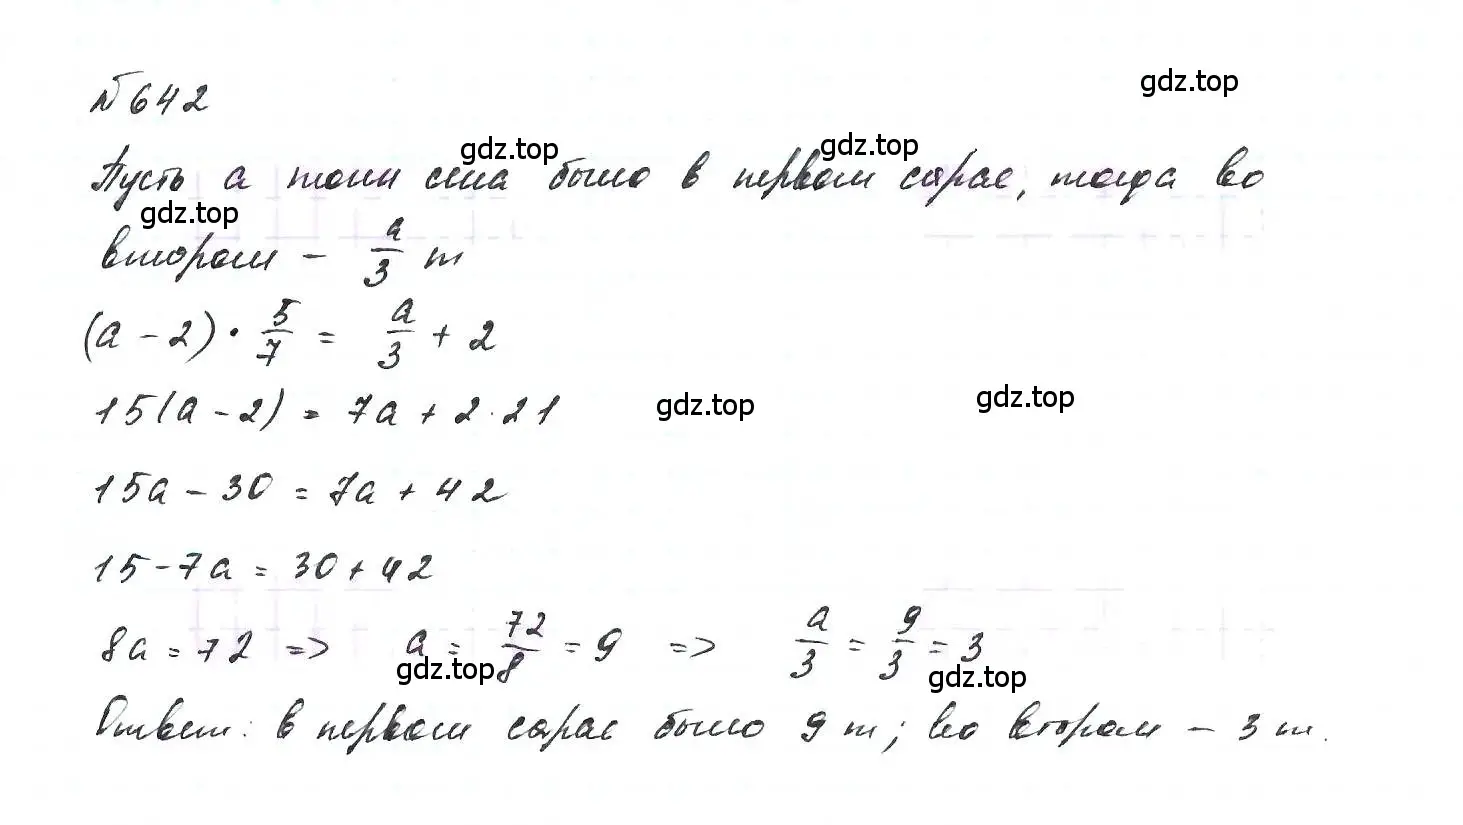 № 642
gdz.top
Пусть a тонн сена было в первом сарае, тогда во
gdz.top gdz.top
втором – a/3 т
gdz.top
(a - 2) · 5/7 = a/3 + 2
15(a - 2) = 7a + 2·21
gdz.top gdz.top
15a - 30 = 7a + 42
15 - 7a = 30 + 42
8a = 72 => a = 72/8 = 9 => a/3 = 9/3 = 3
gdz.top gdz.top
Ответ: в первом сарае было 9 т; во втором – 3 т.